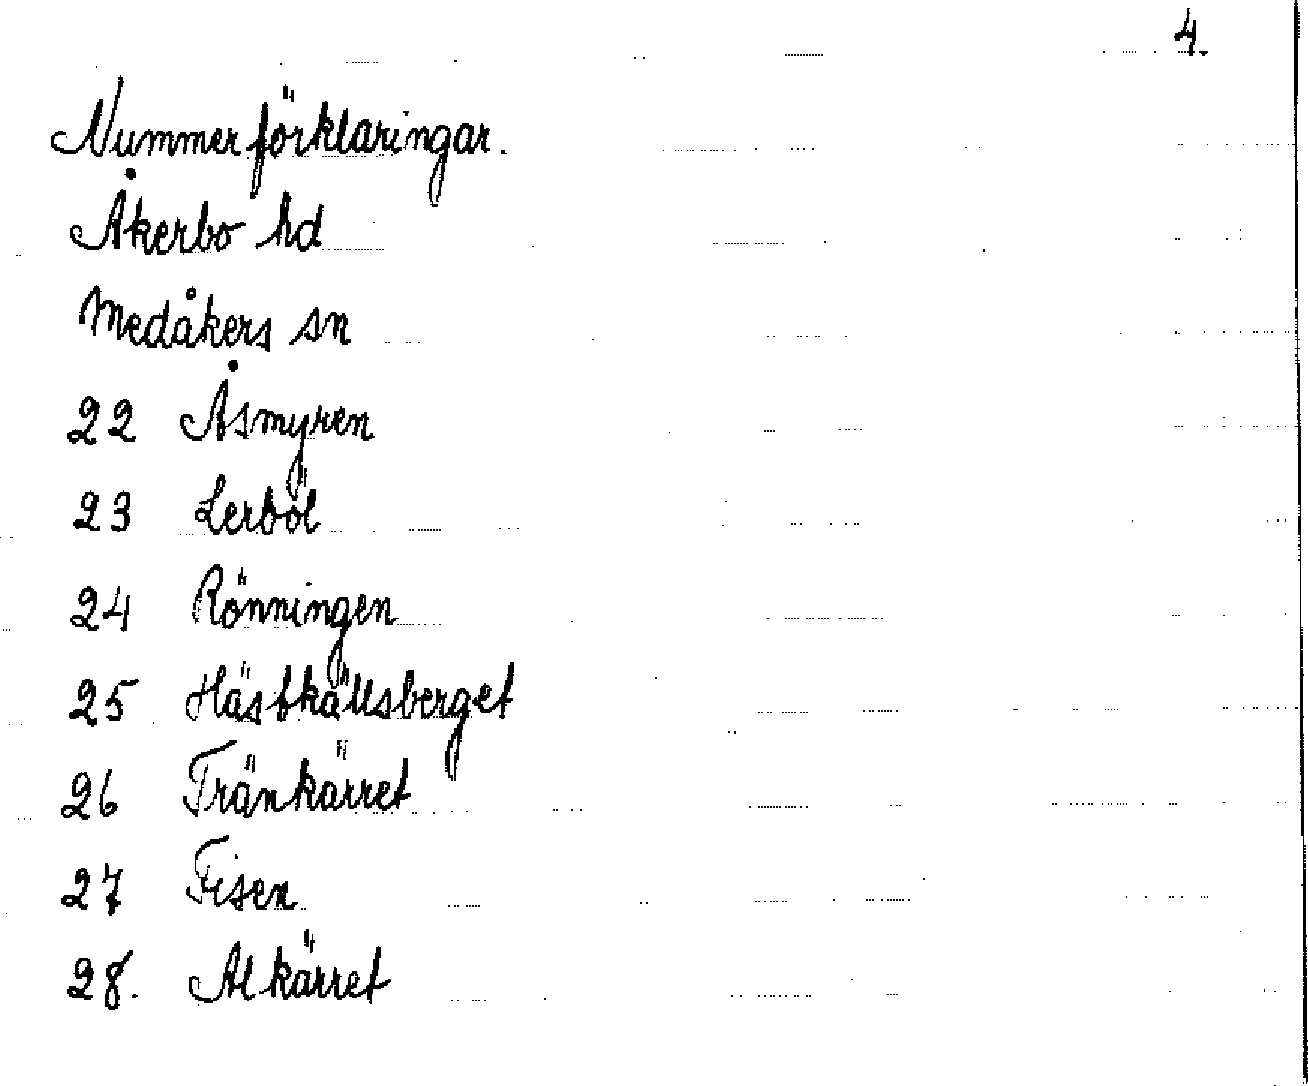 4.
Nummerförklaringar.
Åkerbo hd
Medåkers sn
22 Åsmyren
23 Lerböl
24 Rönningen
25 Hästkällsberget
26 Tränkärret
27 Fisen
28. Alkärret